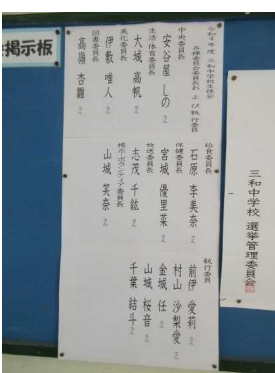 掲示板
令和4年度 三和中学校生徒会
各種委員会委員長および執行委員
中央委員長
安谷屋 しの
生活・体育委員長
大城 高帆
美化委員長
伊敷 唯人
図書委員長
高嶺 杏雛
給食委員長
石原 李美奈
保健委員長
宮城 優里菜
放送委員長
志茂 千紘
掲示・ボランティア委員長
山城 笑奈
執行委員
前伊 愛莉
村山 沙梨愛
金城 任
山城 桜音
千葉 結斗
三和中学校 選挙管理委員会